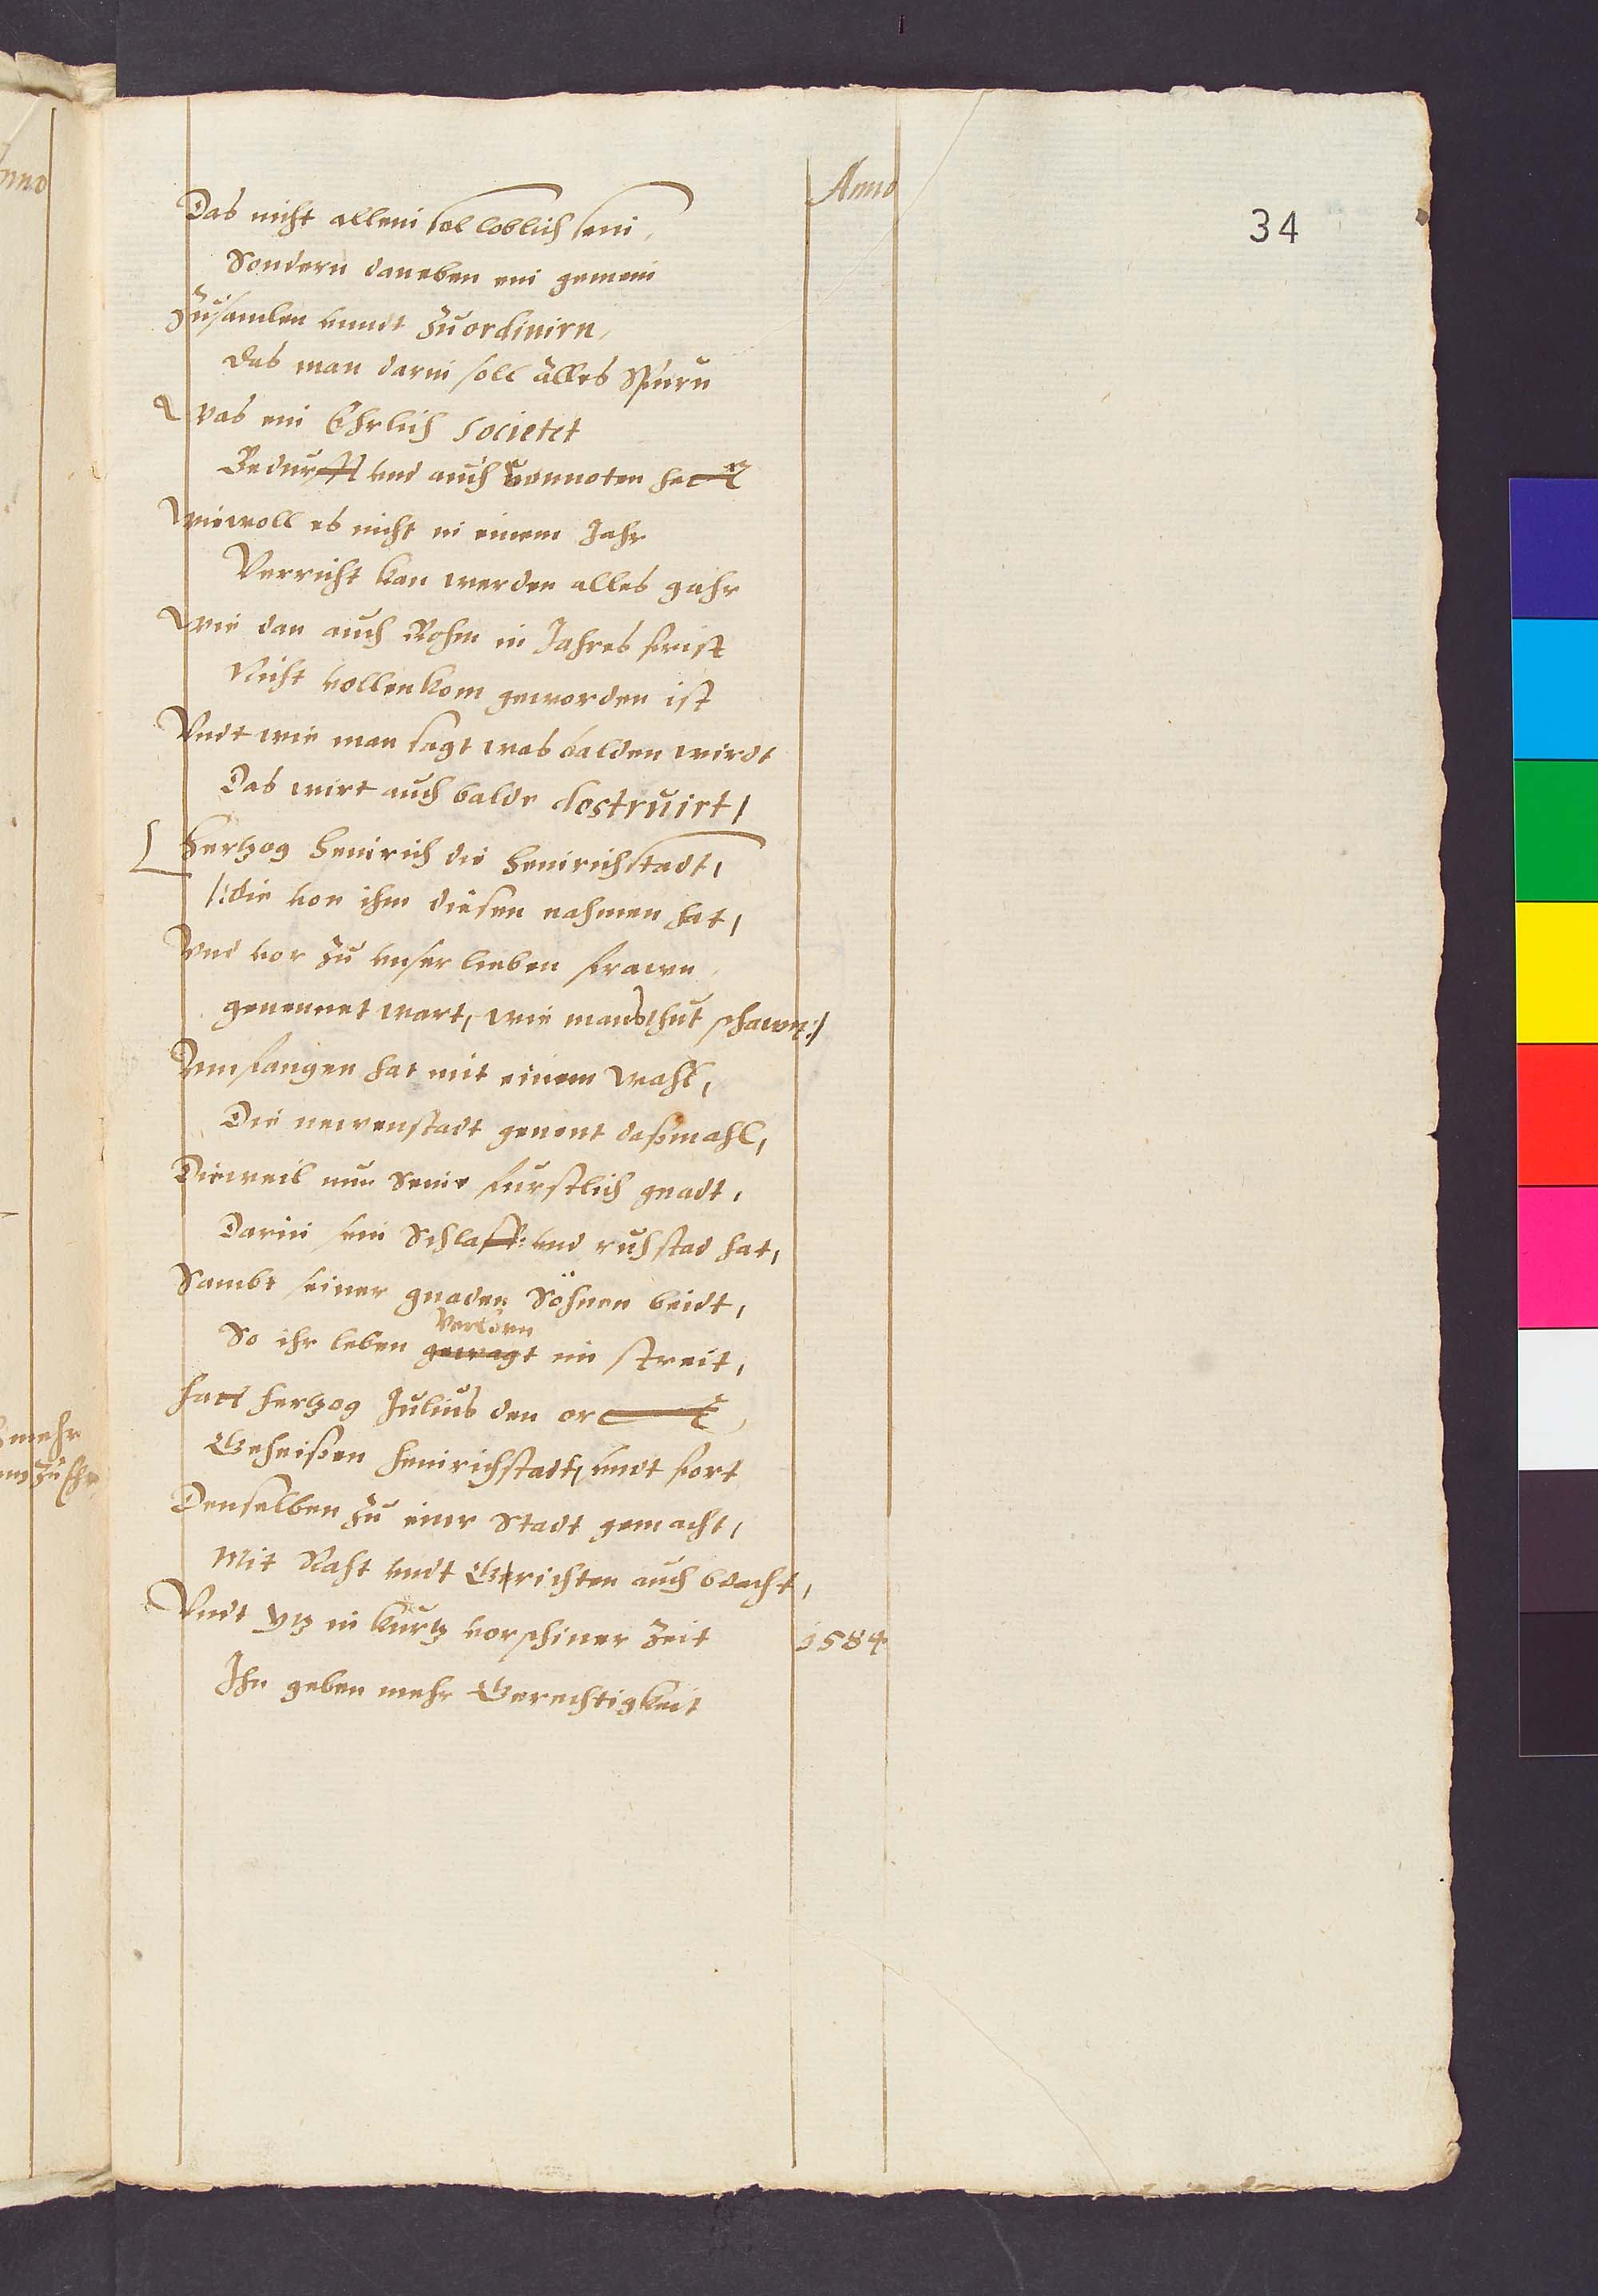 Anno
34
Das nicht allein sol loblich sein,
Sondern daneben ein gemein
Zusamlen vnndt zuordinirn,
Das man darin soll alles Spurn
Was ein Ehrlich Societet
Bedurfft vnd auch vonnoten hett
Wiewoll es nicht in einem Jahr
Verricht kan werden alles gahr
Wie dan auch Rohm in Jahres frist
Nicht vollenkom geworden ist
Vndt wie man sagt was balden wirdt
Das wirt auch balde destruirt/
Hertzog Heinrich die Heinrichstadt,
/:die von ihm diesen nahmen hat,
Vnd vor zu vnser lieben frawn
genennet wart, wie mans thut schawn:/
Vmfangen hat mit einem wahl,
Die newenstadt genent daßmahl,
Dieweil nun Seine furstlich gnadt,
Darin sein Schlaff: vnd ruhstad hat,
Sambt seiner gnaden Söhnen beidt,
Verlorn
So ihr leben gewagt im streit,
Hatt hertzog Julius den ort,
Geheißen Heinrichstadt, vnndt fort
Denselben zu einer Stadt gemacht,
Mit Raht vndt Gerichten auch bdacht,
Vndt itz in kurtz vorschiner zeit
1584
Ihn geben mehr Gerechtigkeit